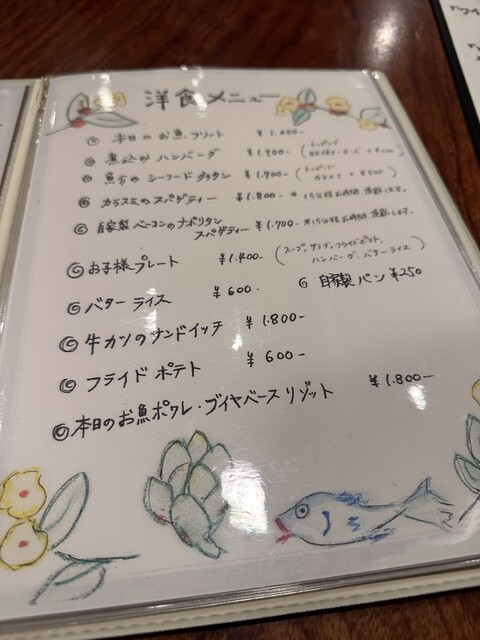 洋食メニュー
本日のお魚フリット
煮込み ハンバーグ ¥1.900-
魚介の シーフード グラタン ¥1.900-
カラスミの スパゲティー ¥1.800- ※15分程お時間 頂戴します。
自家製 ベーコンの ナポリタン スパゲティー ¥1.700- ※15分程お時間 頂戴します。
お子様プレート ¥1.400- (スープ、サラダ、フライドポテト、
ハンバーグ、バターライス)
バター ライス ¥600-
自家製 パン ¥250
牛カツのサンドイッチ ¥1.800-
フライド ポテト ¥600-
本日のお魚ポワレ・ブイヤベース リゾット ¥1.800-